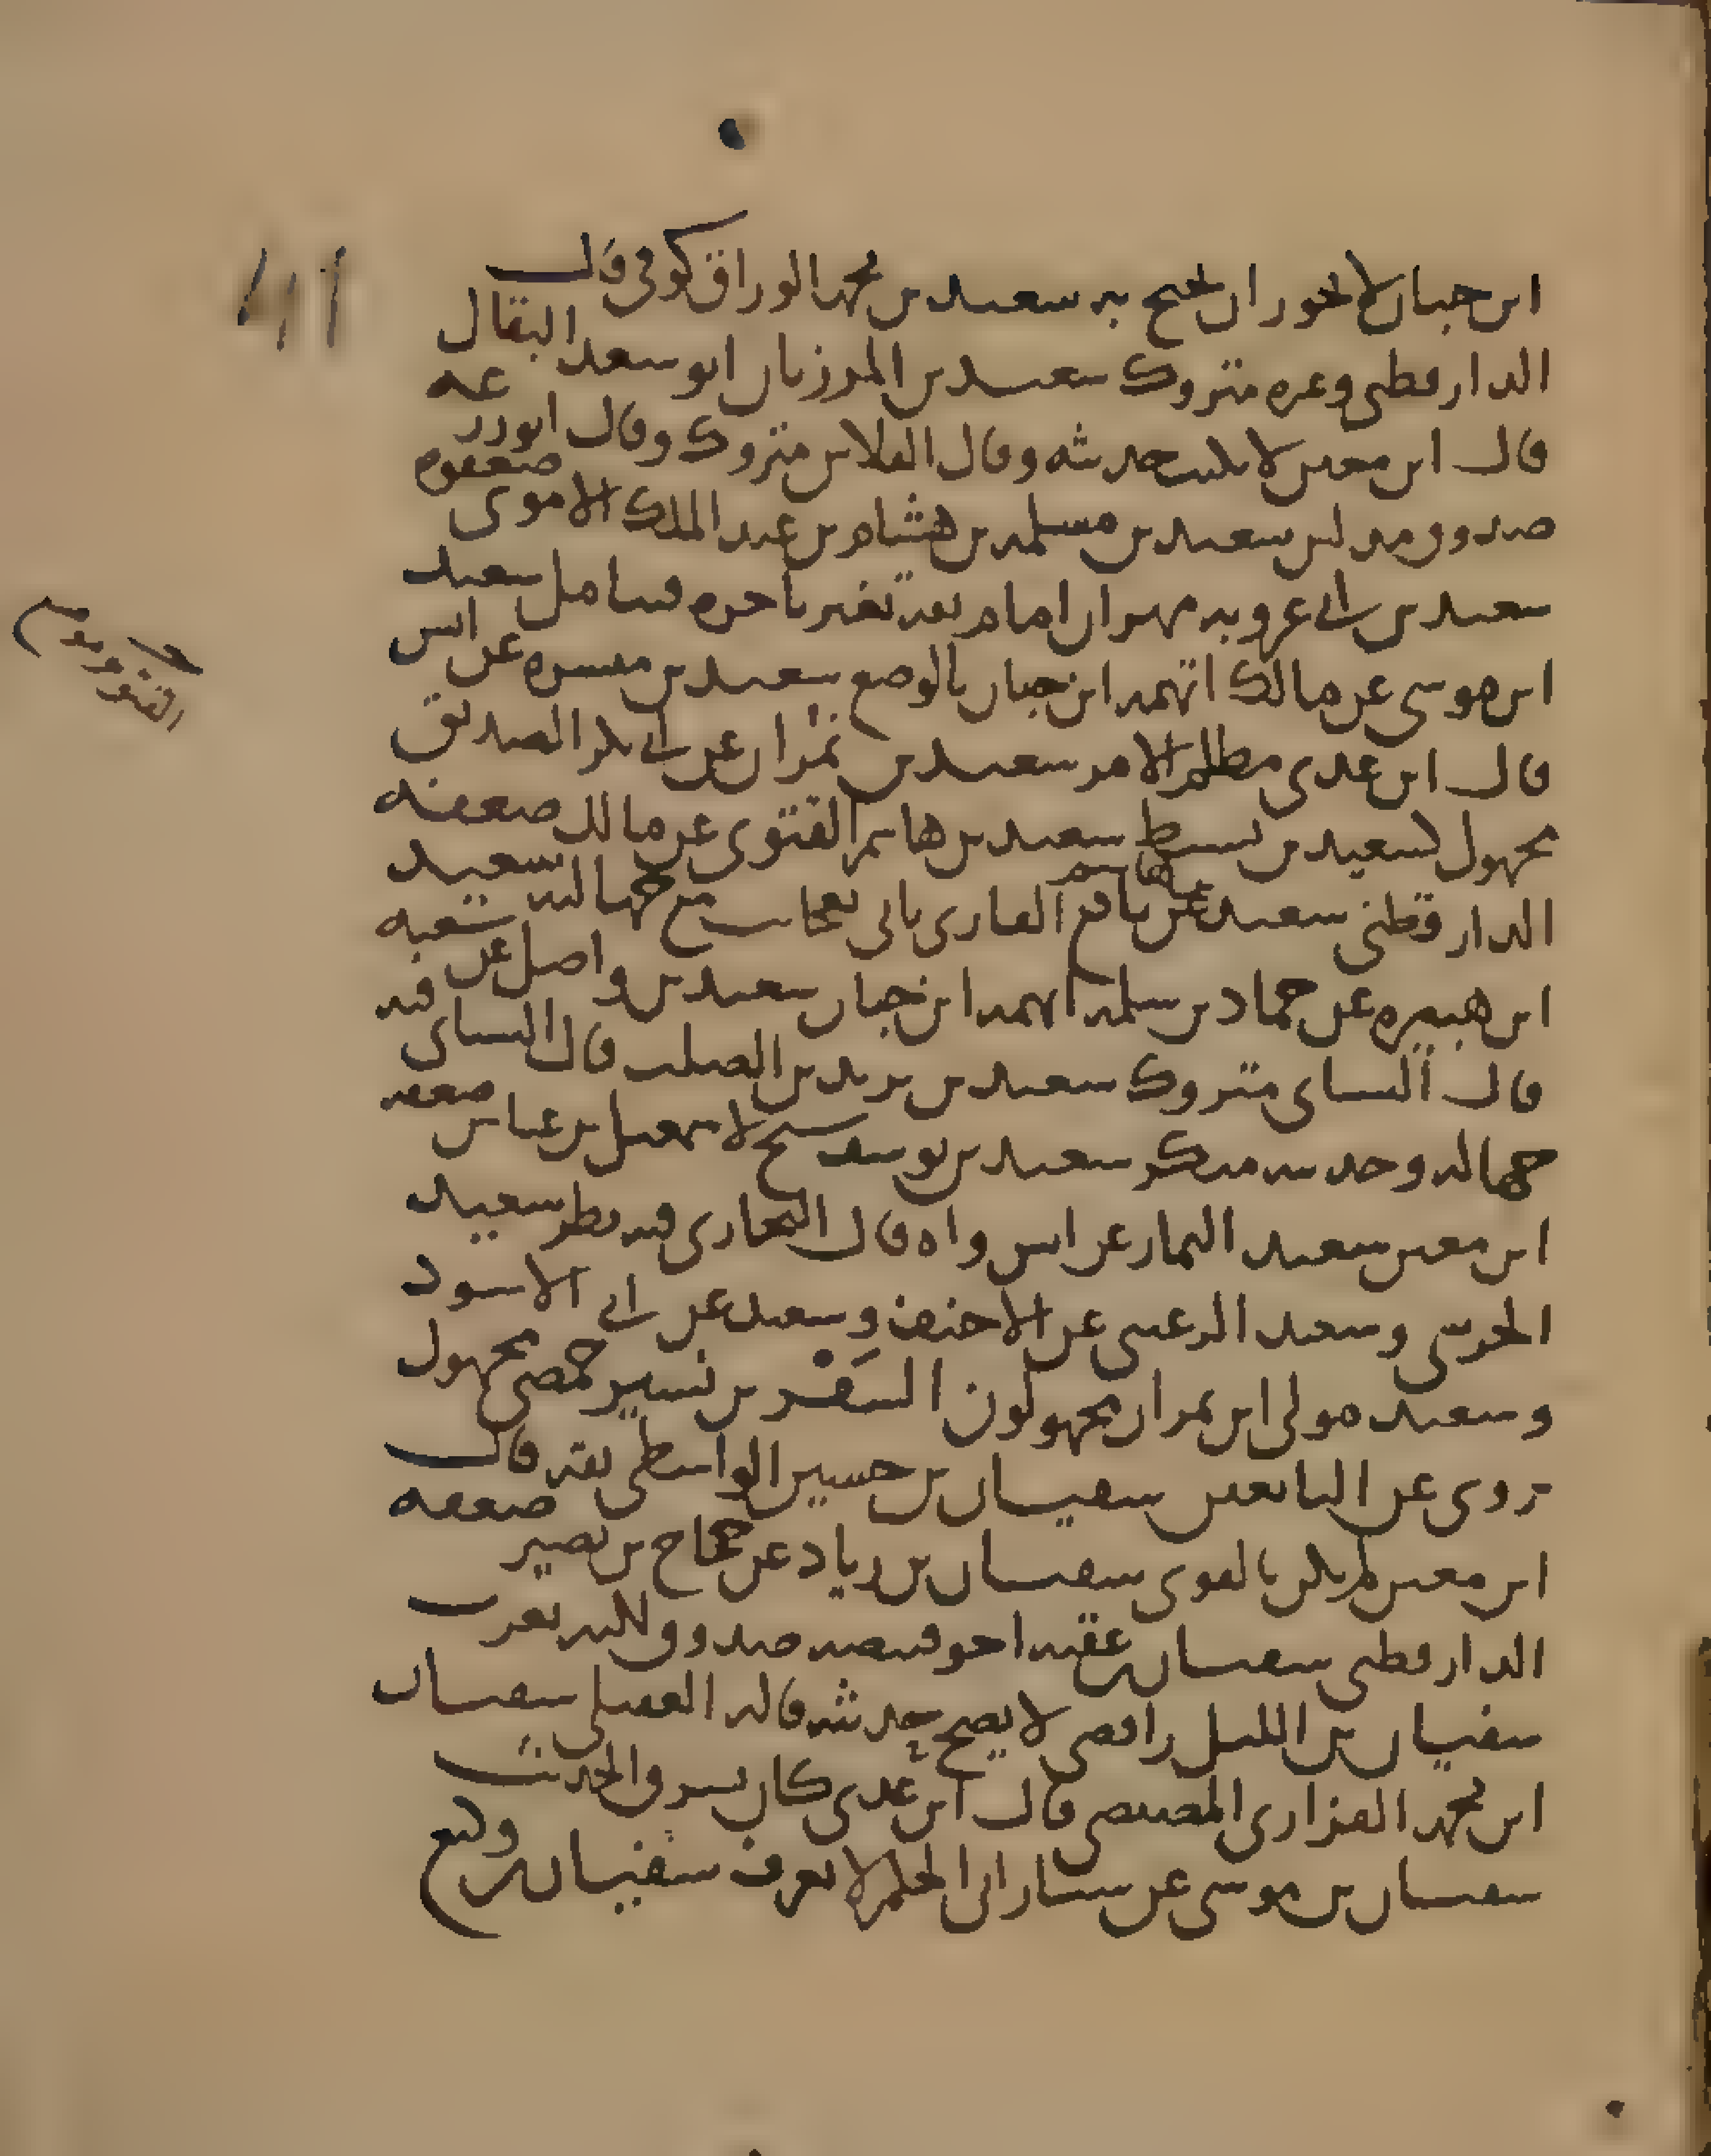 ابن حبان لا يجوز ان يحتج به سعيد بن محمد الوراق كوفي قال
الدارقطني وغيره متروك سعيد بن المرزبان ابو سعد البقال
قال ابن معين لا يكتب حديثه وقال الفلاس متروك وقال ابو زرعه
صدوق مدلس سعيد بن مسلمه بن هشام بن عبد الملك الاموي ضعفوه
سعيد بن ابي عروبه مهران امام ثقه تغير باخره قليلا سعيد
ابن موسى عن مالك اتهمه ابن حبان بالوضع سعيد بن ميسره عن انس
قال ابن عدي مظلم الامر سعيد بن نمران عن ابي بكر الصديق
مجهول سعيد بن هاشم الفتوي عن مالك ضعفه
الدارقطني سعيد بن هاشم عن نافع القاري باتي بعجايب مع جهالته سعيد
ابن هبيره عن حماد بن سلمه اتهمه ابن حبان سعيد بن واصل عن شعبه
قال النساي متروك سعيد بن يزيد بن الصلت قال النساي فيه
جهاله وحديثه منكر سعيد بن يوسف شيخ لاسمعيل بن عياش ضعفه
ابن معين سعيد التمار عن انس واه قال البخاري فيه نظر سعيد
الحرسي وسعيد الرعيني عن الاحنف وسعيد عن ابي الاسود
وسعيد مولى ابن نمران مجهولون السَفْر بن نسير حمصي مجهول
يروي عن التابعين سفيان بن حسين الواسطي ثقه قال
ابن معين لم يكن بالقوي سفيان بن زياد عن حجاج بن نصير ضعفه
الدارقطني سفيان بن عقبه اخو قبيصه صدوق لكنه يغرب
سفيان بن الليل رافضي لا يصح حديثه قاله العقيلي سفيان
ابن محمد الفزاري المصيصي قال ابن عدي كان يسرق الحديث
سفيان بن موسى عن سيار ابي الحكم لا يعرف سفيان بن وكيع